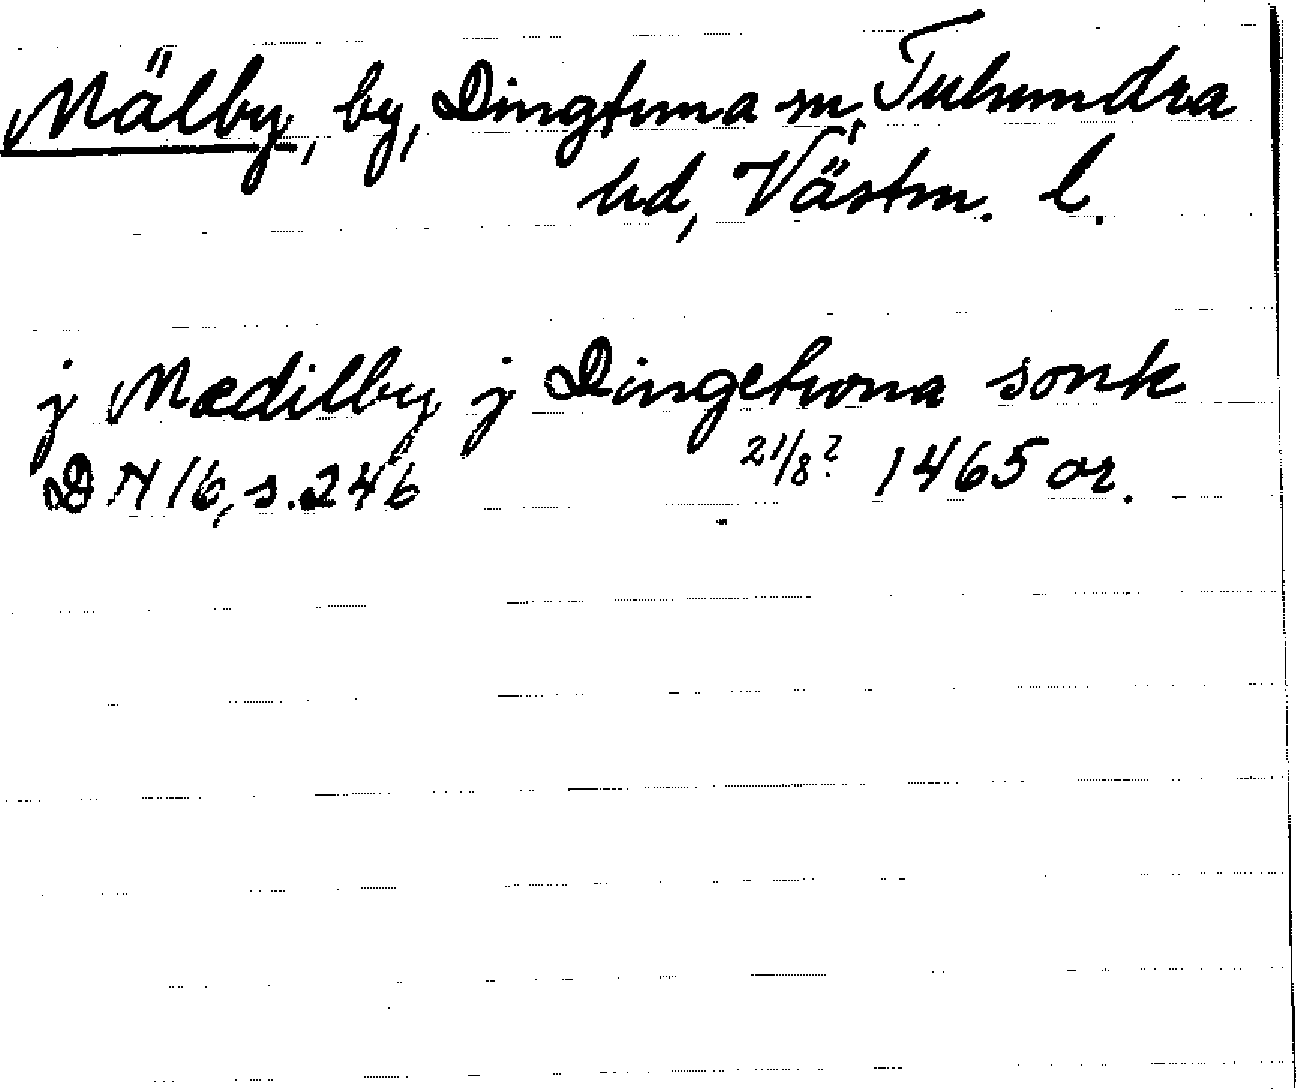 Mälby, by, Dingtuna sn, Tuhundra
hd, Västm. l.
j Mædilby j Dingetwna sonk
DN 16, s. 246 21/8? 1465 or.